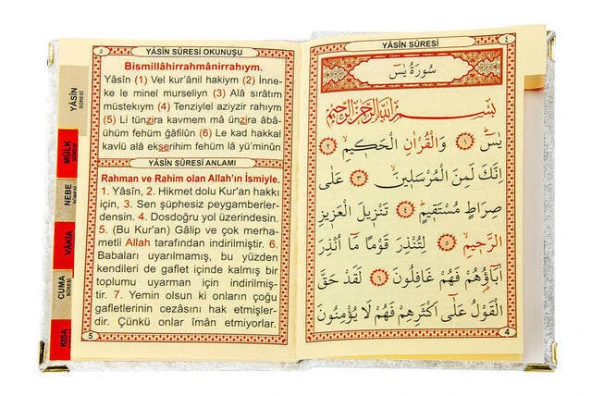 ٥
YÂSÎN SÛRESİ OKUNUŞU
Bismillâhirrahmânirrahıym.
Yâsîn (1) Vel kur'ânil hakiym (2) İnne-
ke le minel murseliyn (3) Alâ sırâtım
müstekıym (4) Tenziylel aziyzir rahıym
(5) Li tünzira kavmem mâ ünzira âbâ-
ühüm fehüm ğâfilûn (6) Le kad hakkal
kavlü alâ ekserihim fehüm lâ yü'minûn
YÂSÎN SÛRESİ ANLAMI
Rahman ve Rahim olan Allah'ın İsmiyle.
1. Yâsîn, 2. Hikmet dolu Kur'an hakkı
için, 3. Sen şüphesiz peygamberler-
densin. 4. Dosdoğru yol üzerindesin.
5. (Bu Kur'an) Gâlip ve çok merha-
metli Allah tarafından indirilmiştir. 6.
Babaları uyarılmamış, bu yüzden
kendileri de gaflet içinde kalmış bir
toplumu uyarman için indirilmiş-
tir. 7. Yemin olsun ki onların çoğu
gafletlerinin cezasını hak etmişler-
dir. Çünkü onlar îmân etmiyorlar.
5
YÂSİN
SÛRESİ
MÜLK
SÛRESİ
NEBE
SÛRESİ
VÂKIA
CUMA
SÛRESİ
KISA
YÂSİN SÛRESİ
٤
سُورَةُ يٰسٓ
بِسْمِ اللّٰهِ الرَّحْمٰنِ الرَّحِيمِ
يٰسٓ ﴿١﴾ وَالْقُرْاٰنِ الْحَكِيمِ ﴿٢﴾
اِنَّكَ لَمِنَ الْمُرْسَلِينَ ﴿٣﴾ عَلٰى
صِرَاطٍ مُسْتَقِيمٍ ﴿٤﴾ تَنْزِيلَ الْعَزِيزِ
الرَّحِيمِ ﴿٥﴾ لِتُنْذِرَ قَوْمًا مَٓا اُنْذِرَ
اٰبَٓاؤُ۬هُمْ فَهُمْ غَافِلُونَ ﴿٦﴾ لَقَدْ حَقَّ
الْقَوْلُ عَلٰٓى اَكْثَرِهِمْ فَهُمْ لَا يُؤْمِنُونَ
4